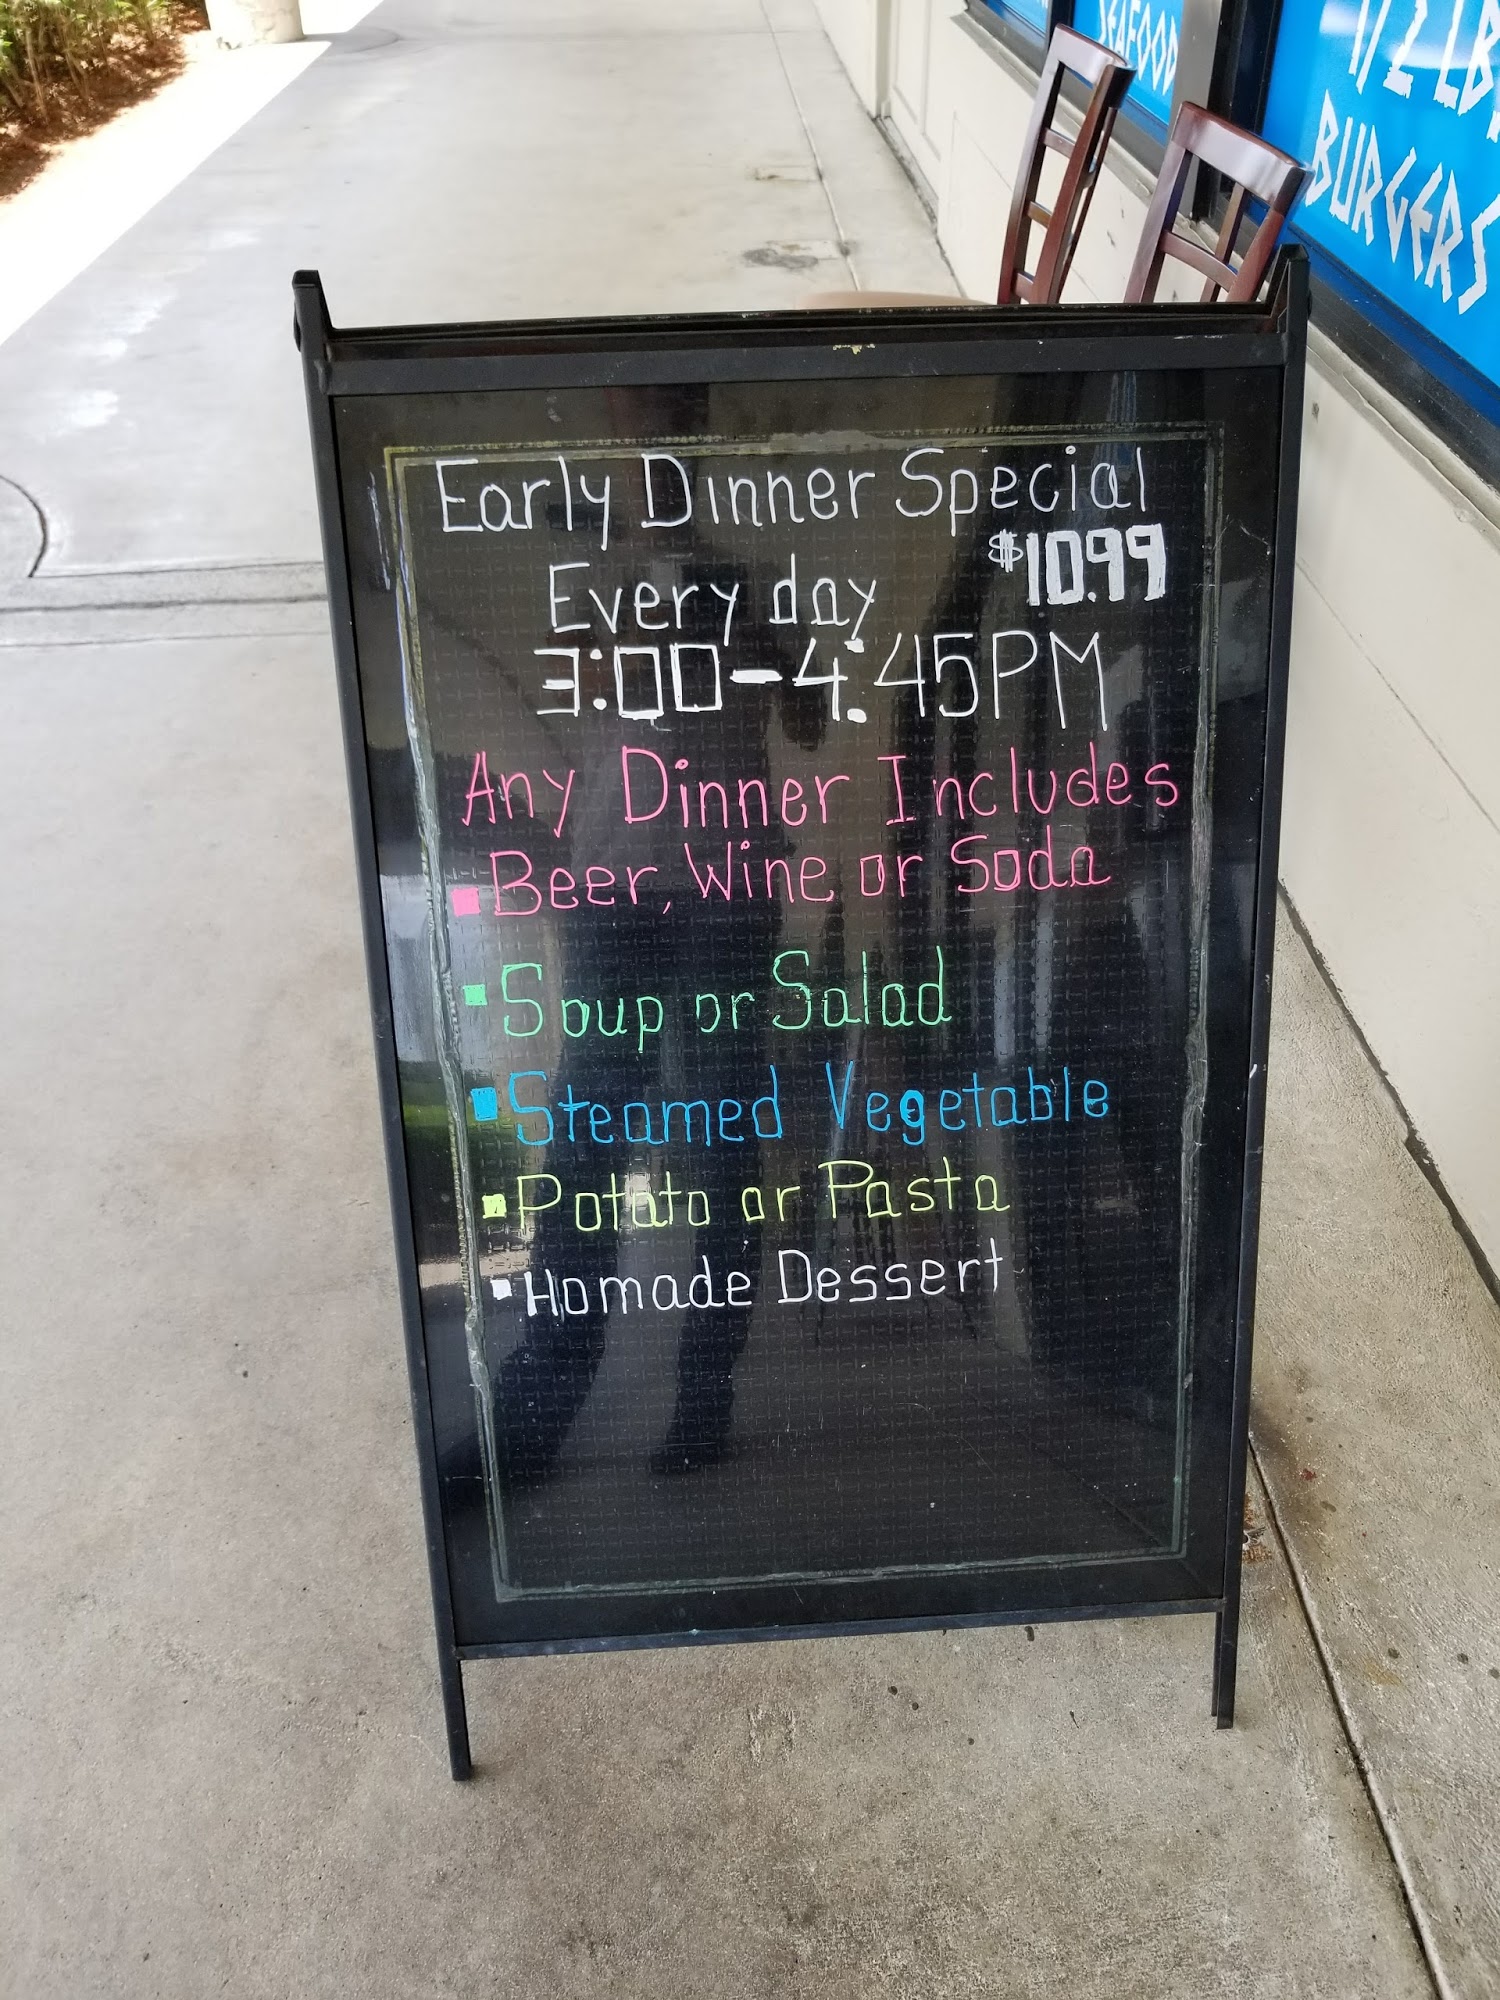 SEAFOOD
1/2 LB
BURGERS
Early Dinner Special
$10.99
Every day
3:00-4:45PM
Any Dinner Includes
▪Beer, Wine or Soda
▪Soup or Salad
▪Steamed Vegetable
▪Potato or Pasta
▪Homade Dessert